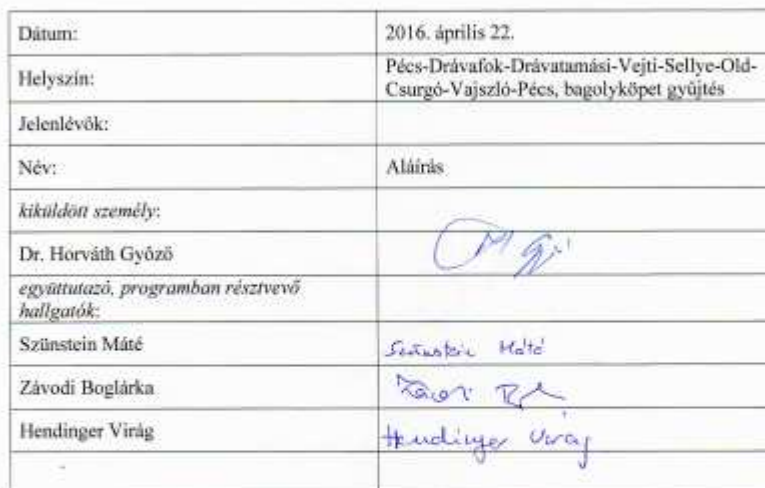 Dátum: 2016. április 22.
Helyszín: Pécs-Drávafok-Drávatamási-Vejti-Sellye-Old-
Csurgó-Vajszló-Pécs, bagolyköpet gyűjtés
Jelenlévők:
Név: Aláírás
kiküldött személy:
Dr. Horváth Győző
együttutazó, programban résztvevő
hallgatók:
Szünstein Máté Szünstein Máté
Závodi Boglárka
Hendinger Virág Hendinger Virág